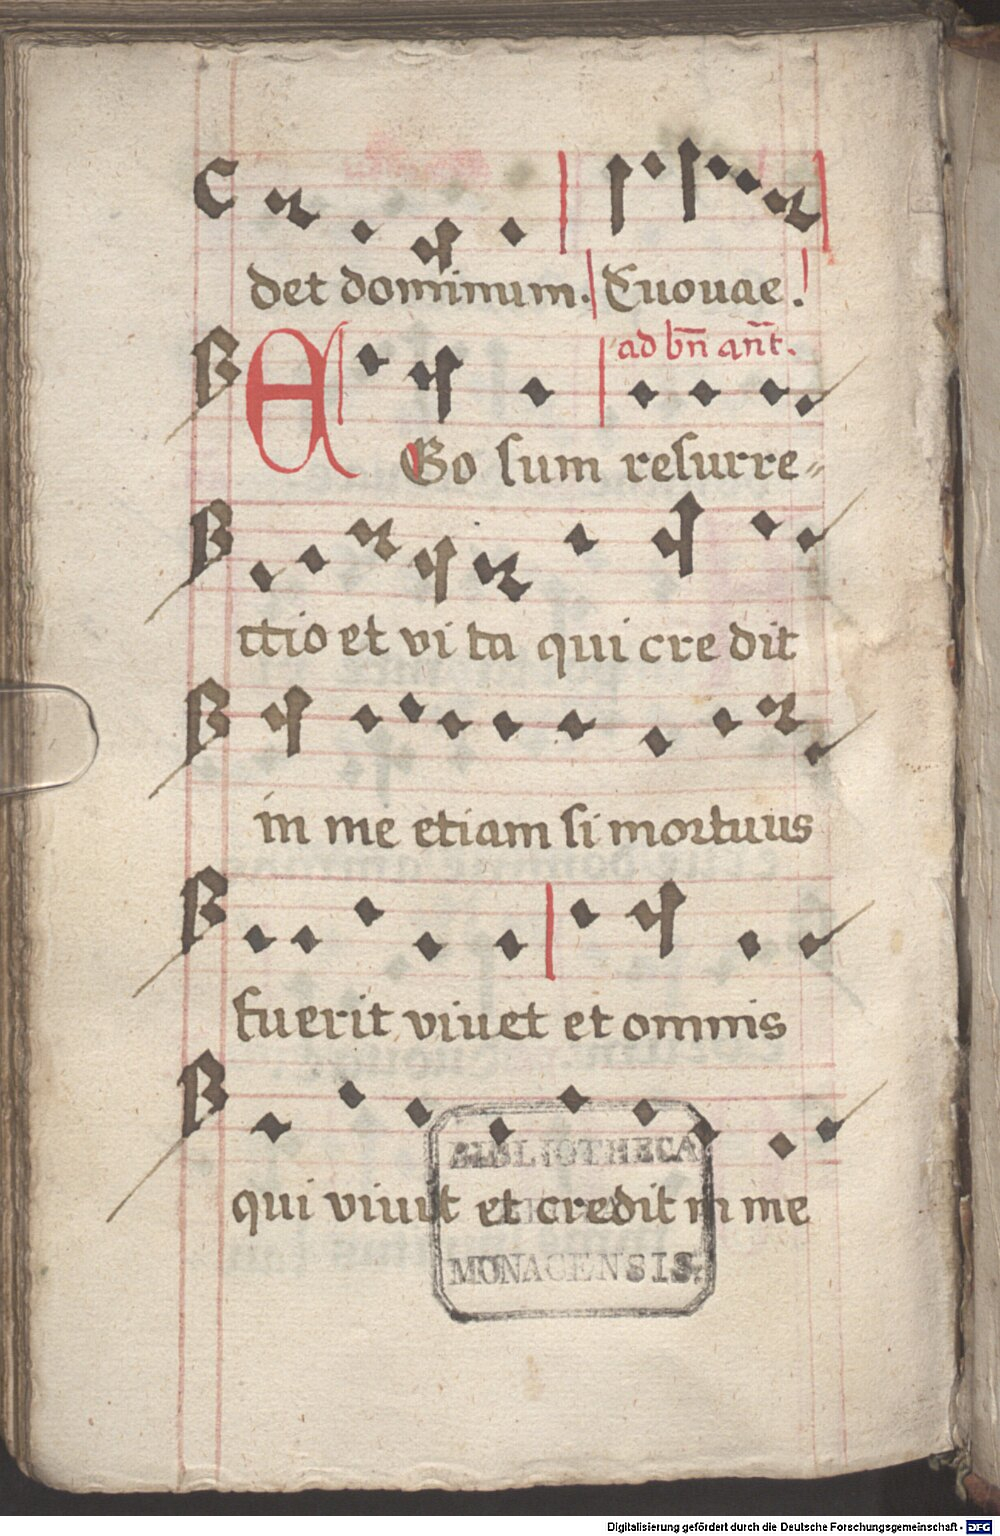 det dominum. Euouae.
ad bn̄ an̄t.
EGo sum resurre-
ctio et vi ta qui cre dit
in me etiam si mortuus
fuerit viuet et omnis
qui viuit et credit in me
BIBLIOTHECA
MONACENSIS.
Digitalisierung gefördert durch die Deutsche Forschungsgemeinschaft - DFG